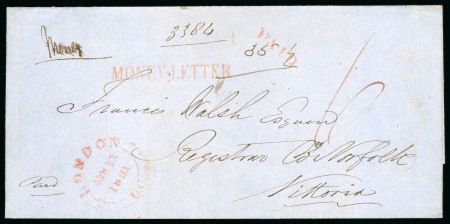 Money
3384
PAID
35
MONEY-LETTER
Francis Walsh Esquire
Registrar Co Norfolk
Vittoria
Paid
LONDON